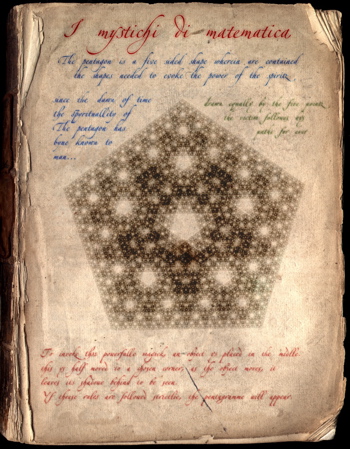 I mystichi di matematica
The pentagon is a five sided shape wherein are contained
the shapes needed to evoke the power of the spirits
since the dawn of time
the spirituallity of
The pentagon has
bene known to
man...
drawn equally by the five points
the
follows
for ever
To invoke this powerfulle magick, an object is placed in the midlle
this is half moved to a chosen corner, as the object moves, it
leaves its shadow behind to be seen
If those rules are followed the pentagramme will appear